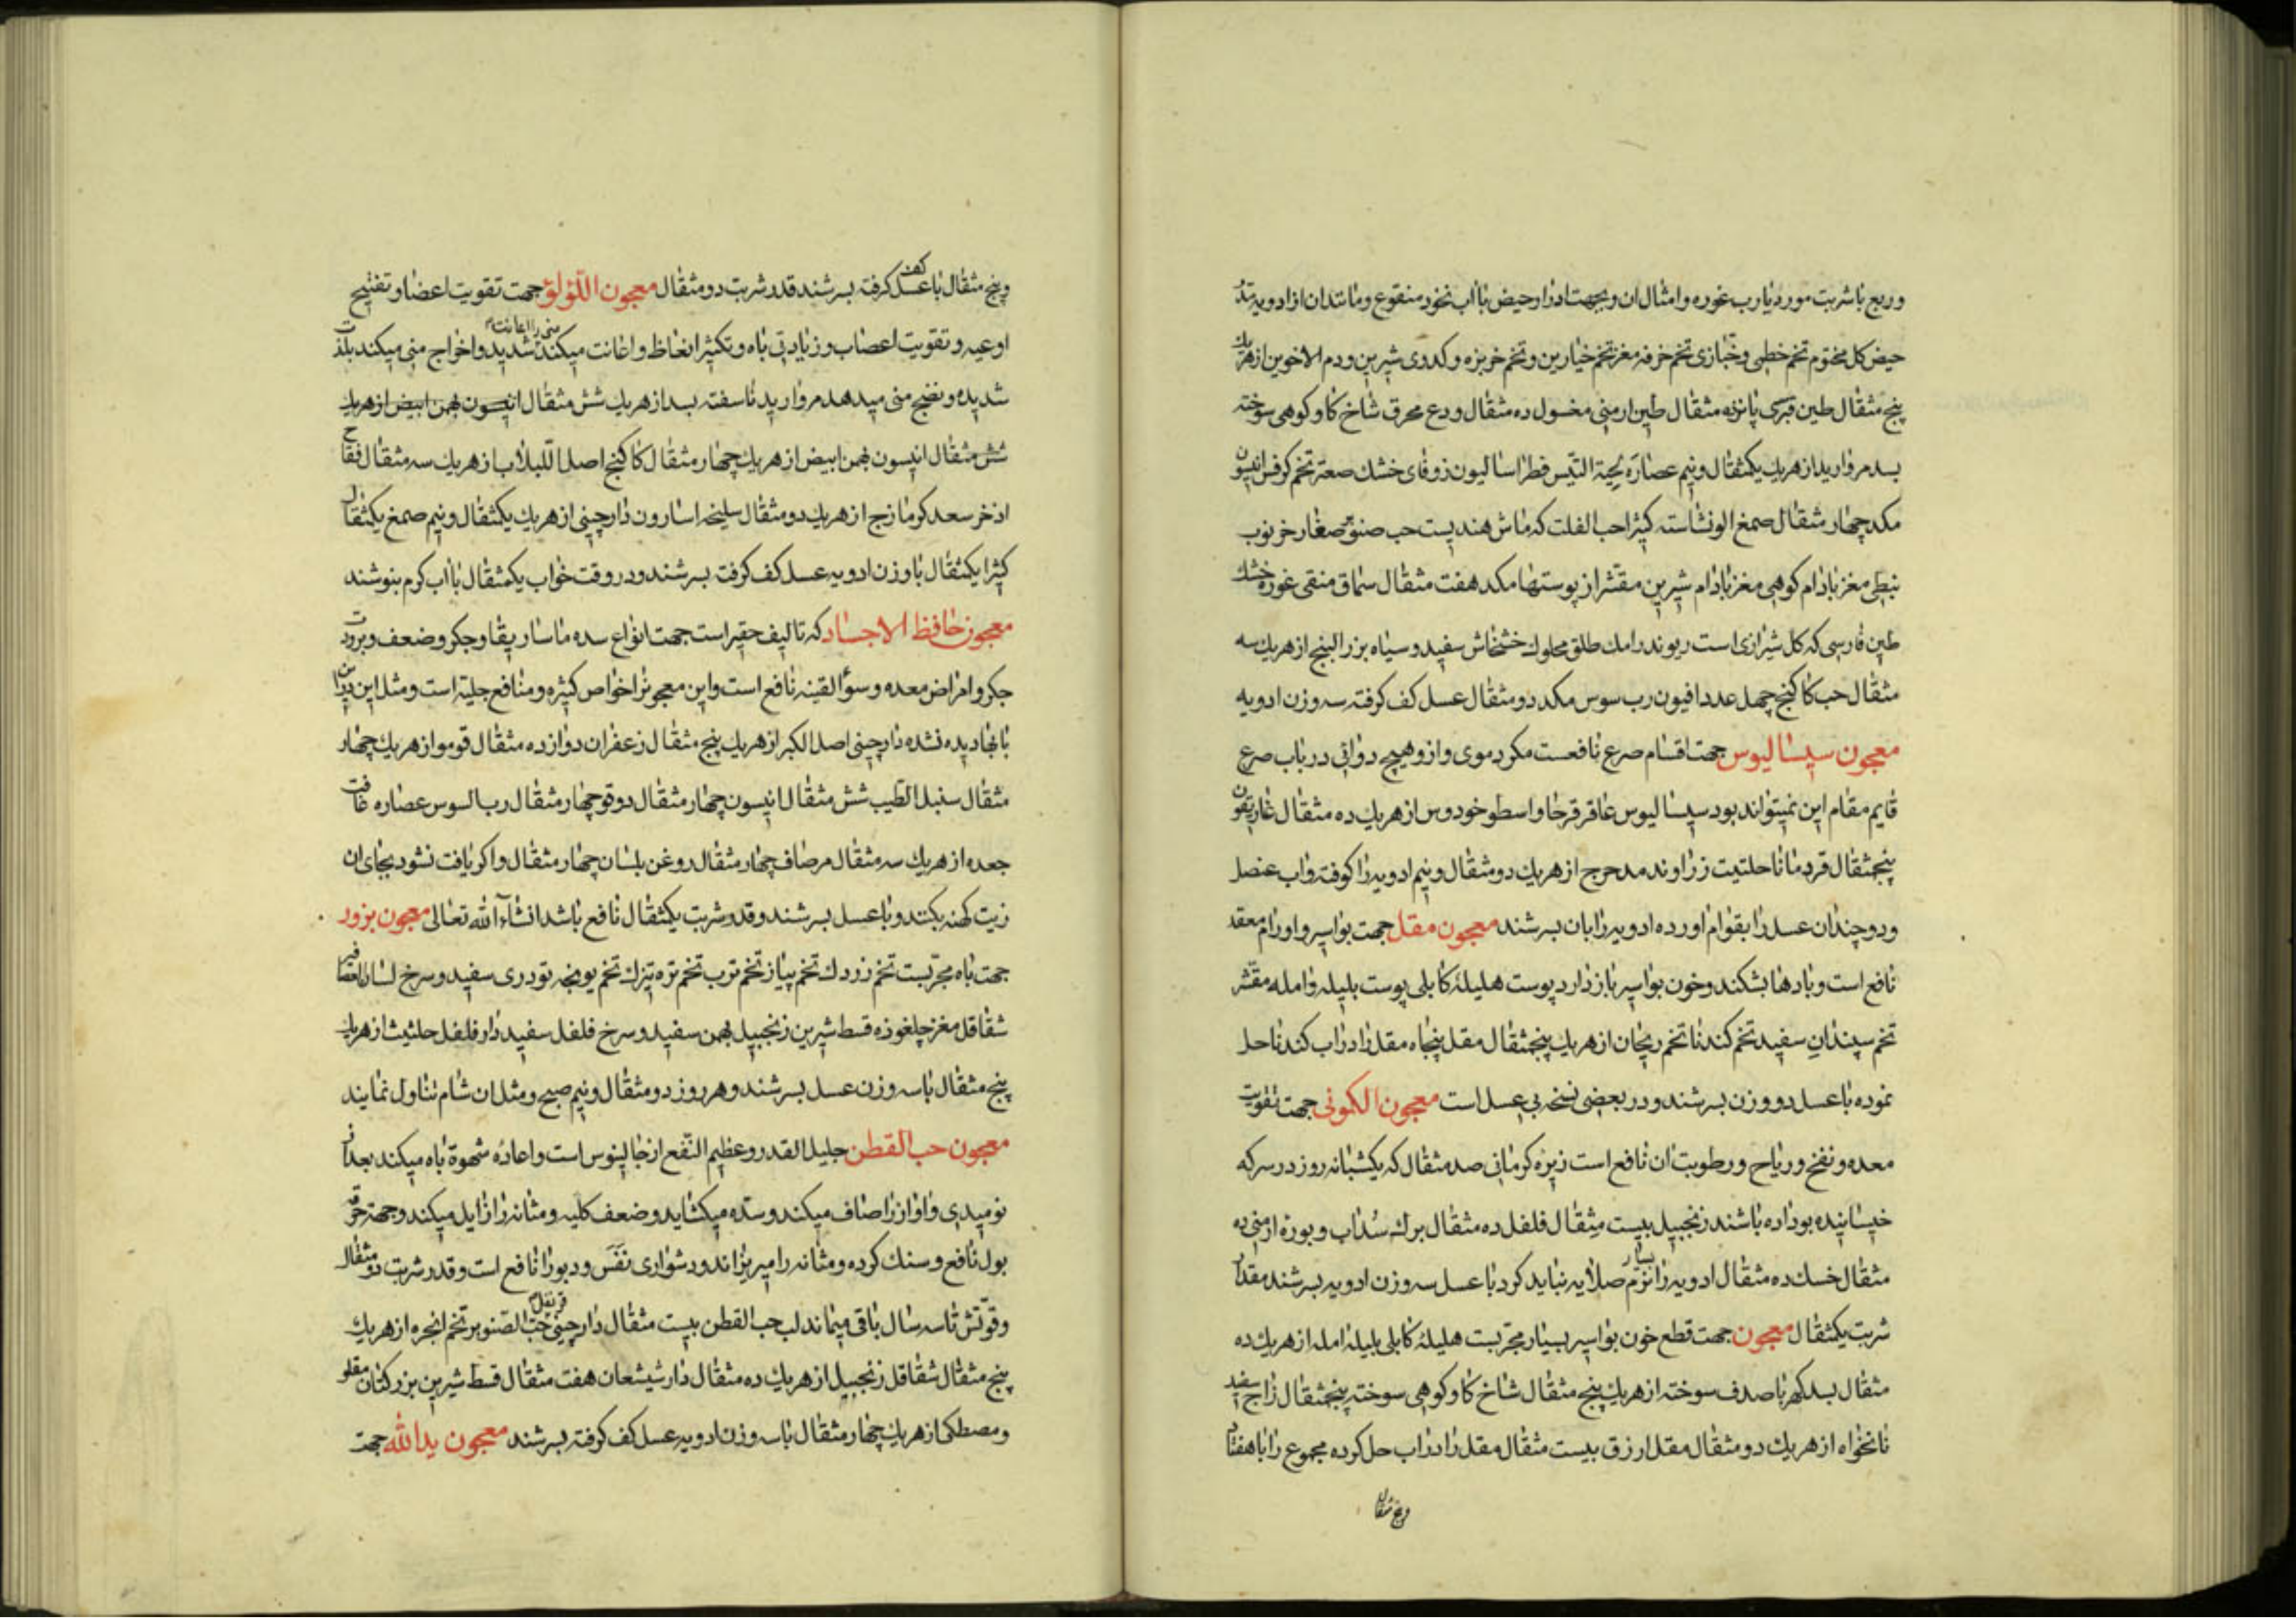 وربع باشربت مورد یا رب غوره و امثال ان و بجهت ادرار حیض با اب نخود منقوع و مانند ان از ادویه مدر
حیض کل مختوم تخم خطمی و خبازی تخم خرفه مغز تخم خیارین و تخم خربزه و کدوی شیرین و دم الاخوین از هریک
پنج مثقال طین قبرسی پانزده مثقال طین ارمنی مغسول ده مثقال ودع محرق شاخ کاو کوهی سوخته
بسد مروارید از هریک یکمثقال و نیم عصاره لحیة التیس فطراسالیون زوفای خشک صعتر تخم کرفس انیسون
مکد چهار مثقال صمغ الو نشاسته کثیرا حب الفلت که ماش هندیست حب صنوبر صغار خرنوب
نبطی مغز بادام کوهی مغز بادام شیرین مقشر از پوستها مکد هفت مثقال سماق منقی غوره خشک
طین فارسی که کل شیرازی است ریوند رامک طلق محلول خشخاش سفید و سیاه بزر البنج از هریک سه
مثقال حب کاکنج چهل عدد افیون رب سوس مکد دو مثقال عسل کف کرفته سه وزن ادویه
معجون سیسالیوس جهت اقسام صرع نافعست مکر دموی و از و هیچ دوائی در باب صرع
قایم مقام این نمیتواند بود سیسالیوس عاقر قرحا و اسطوخودوس از هریک ده مثقال غاریقون
پنجمثقال قردمانا حلتیت زراوند مدحرج از هریک دو مثقال و نیم ادویه را کوفته و اب عنصل
و دو چندان عسل را بقوام اورده ادویه را بان بسرشند معجون مقل جهت بواسیر و اورام معقد
نافع است و بادها بشکند و خون بواسیر باز دارد پوست هلیلهٔ کابلی پوست بلیله و امله مقشر
تخم سپندان سفید تخم کندنا تخم ریحان از هریک پنجمثقال مقل پنجاه مقل را در اب کندنا حل
نموده با عسل دو وزن بسرشند و در بعضی نسخه بی عسل است معجون الکمونی جهت تقویت
معده و نفخ و ریاح و رطوبت ان نافع است زیره کرمانی صد مثقال که یکشبانه روز در سرکه
خیسانیده بو داده باشند زنجبیل بیست مثقال فلفل ده مثقال برک سداب و بوره ارمنی ده
مثقال خسک ده مثقال ادویه را نرم بسیار صلایه نباید کرد با عسل سه وزن ادویه بسرشند مقدار
شربت یکمثقال معجون جهت قطع خون بواسیر بسیار مجربست هلیلهٔ کابلی بلیله امله از هریک ده
مثقال بسد کهربا صدف سوخته از هریک پنج مثقال شاخ کاو کوهی سوخته پنجمثقال زاج سفید
نانخواه از هریک دو مثقال مقل ارزق بیست مثقال مقل را در اب حل کرده مجموع را با هفتاد
و پنج مثقال
و پنج مثقال با عسل کف کرفته بسرشند قدر شربت دو مثقال معجون اللؤلؤ جهت تقویت اعضا و تفتیح
اوعیه و تقویت اعصاب و زیادتی باه و تکثیر انعاظ و اعانت میکند منی را اعانت شدید و اخراج منی میکند بلذت
شدیده و نضج منی میدهد مروارید ناسفته بسد از هریک شش مثقال انیسون بهمن ابیض از هریک
شش مثقال انیسون بهمن ابیض از هریک چهار مثقال کاکنج اصل اللبلاب از هریک سه مثقال فقاح
اذخر سعد کرمازج از هریک دو مثقال سلیخه اسارون دارچینی از هریک یکمثقال و نیم صمغ یکمثقال
کثیرا یکمثقال با وزن ادویه عسل کف کرفته بسرشند و در وقت خواب یکمثقال با اب کرم بنوشند
معجون حافظ الاجساد که تالیف حقیر است جهت انواع سده ماساریقا و جکر و ضعف و برودت
جکر و امراض معده و سوء القنیه نافع است و این معجون را خواص کثیره و منافع جلیه است و مثل این در این
بابها دیده نشده دارچینی اصل الکبر از هریک پنج مثقال زعفران دوازده مثقال فو مو از هریک چهار
مثقال سنبل الطیب شش مثقال انیسون چهار مثقال دوقو چهار مثقال رب السوس عصاره غافت
جعده از هریک سه مثقال مر صاف چهار مثقال روغن بلسان چهار مثقال و اکر یافت نشود بجای ان
زیت کهنه بکنند و با عسل بسرشند و قدر شربت یکمثقال نافع باشد انشاء الله تعالی معجون بزور
جهت باه مجربست تخم زردک تخم پیاز تخم ترب تخم تره تیزک تخم یونجه تودری سفید و سرخ لسان العصافیر
شقاقل مغز چلغوزه قسط شیرین زنجبیل بهمن سفید و سرخ فلفل سفید دارفلفل حلتیت از هریک
پنج مثقال با سه وزن عسل بسرشند و هر روز دو مثقال و نیم صبح و مثل ان شام تناول نمایند
معجون حب القطن جلیل القدر و عظیم النفع از جالینوس است و اعاده شهوة باه میکند بعد از
نومیدی و اواز را صاف میکند و سده میکشاید و ضعف کلیه و مثانه را زایل میکند و جهت حرقه
بول نافع و سنک کرده و مثانه را میریزاند و دشواری نفس و دبو را نافع است و قدر شربت دو مثقال
و قوتش تا سه سال باقی میماند لب حب القطن بیست مثقال دارچینی قرنفل حب الصنوبر تخم انجره از هریک
پنج مثقال شقاقل زنجبیل از هریک ده مثقال دارشیشعان هفت مثقال قسط شیرین بزر کتان مقلو
و مصطکی از هریک چهار مثقال با سه وزن ادویه عسل کف کرفته بسرشند معجون ید الله جهت